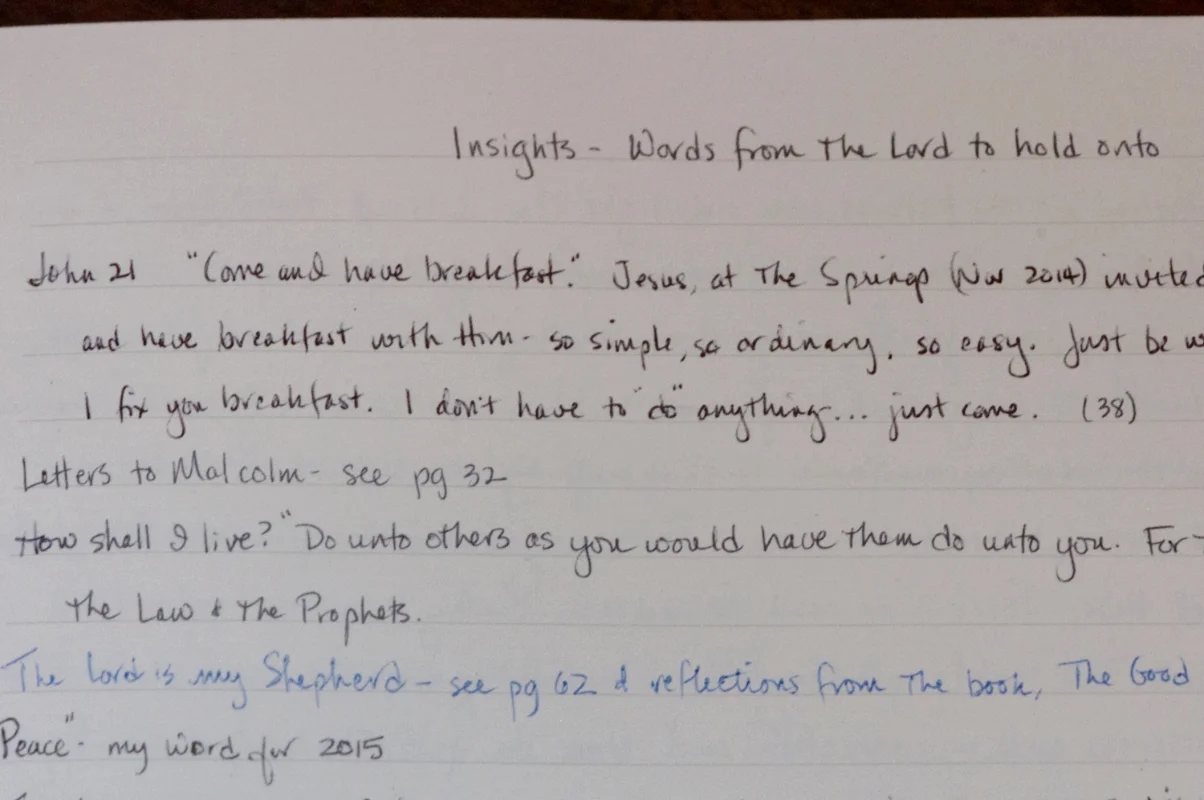 Insights - Words from The Lord to hold onto
John 21 "Come and have breakfast." Jesus, at The Springs (Nov 2014) invited
and have breakfast with Him - so simple, so ordinary, so easy. Just be
I fix you breakfast. I don't have to "do" anything... just come. (38)
Letters to Malcolm - see pg 32
How shall I live? "Do unto others as you would have them do unto you. For
the Law & The Prophets.
The Lord is my Shepherd - see pg 62 & reflections from The book, The Good
Peace" - my word for 2015